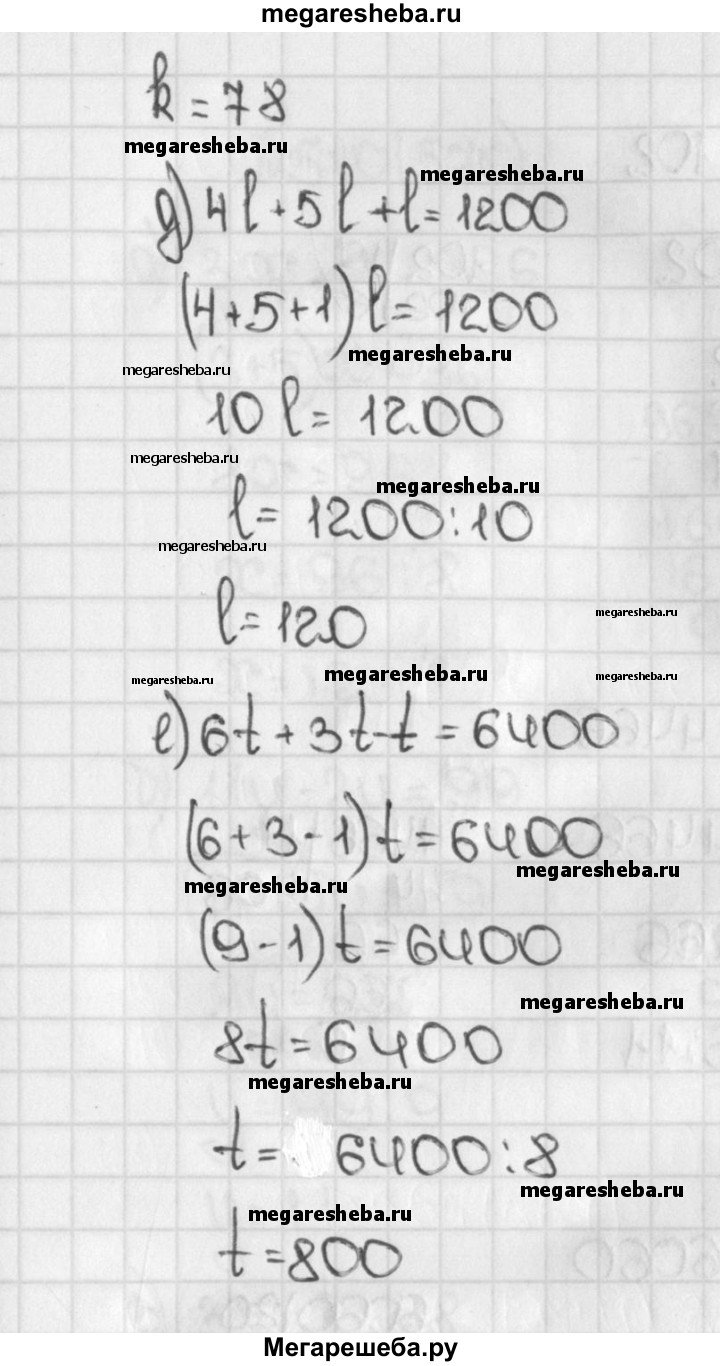 megaresheba.ru
k = 78
megaresheba.ru
megaresheba.ru
д) 4l + 5l + l = 1200
(4 + 5 + 1) l = 1200
megaresheba.ru
megaresheba.ru
10 l = 1200
megaresheba.ru
megaresheba.ru
l = 1200 : 10
megaresheba.ru
l = 120
megaresheba.ru
megaresheba.ru
megaresheba.ru
megaresheba.ru
е) 6t + 3t - t = 6400
(6 + 3 - 1) t = 6400
megaresheba.ru
megaresheba.ru
(9 - 1) t = 6400
megaresheba.ru
8t = 6400
megaresheba.ru
t = 6400 : 8
megaresheba.ru
megaresheba.ru
t = 800
Мегарешеба.ру